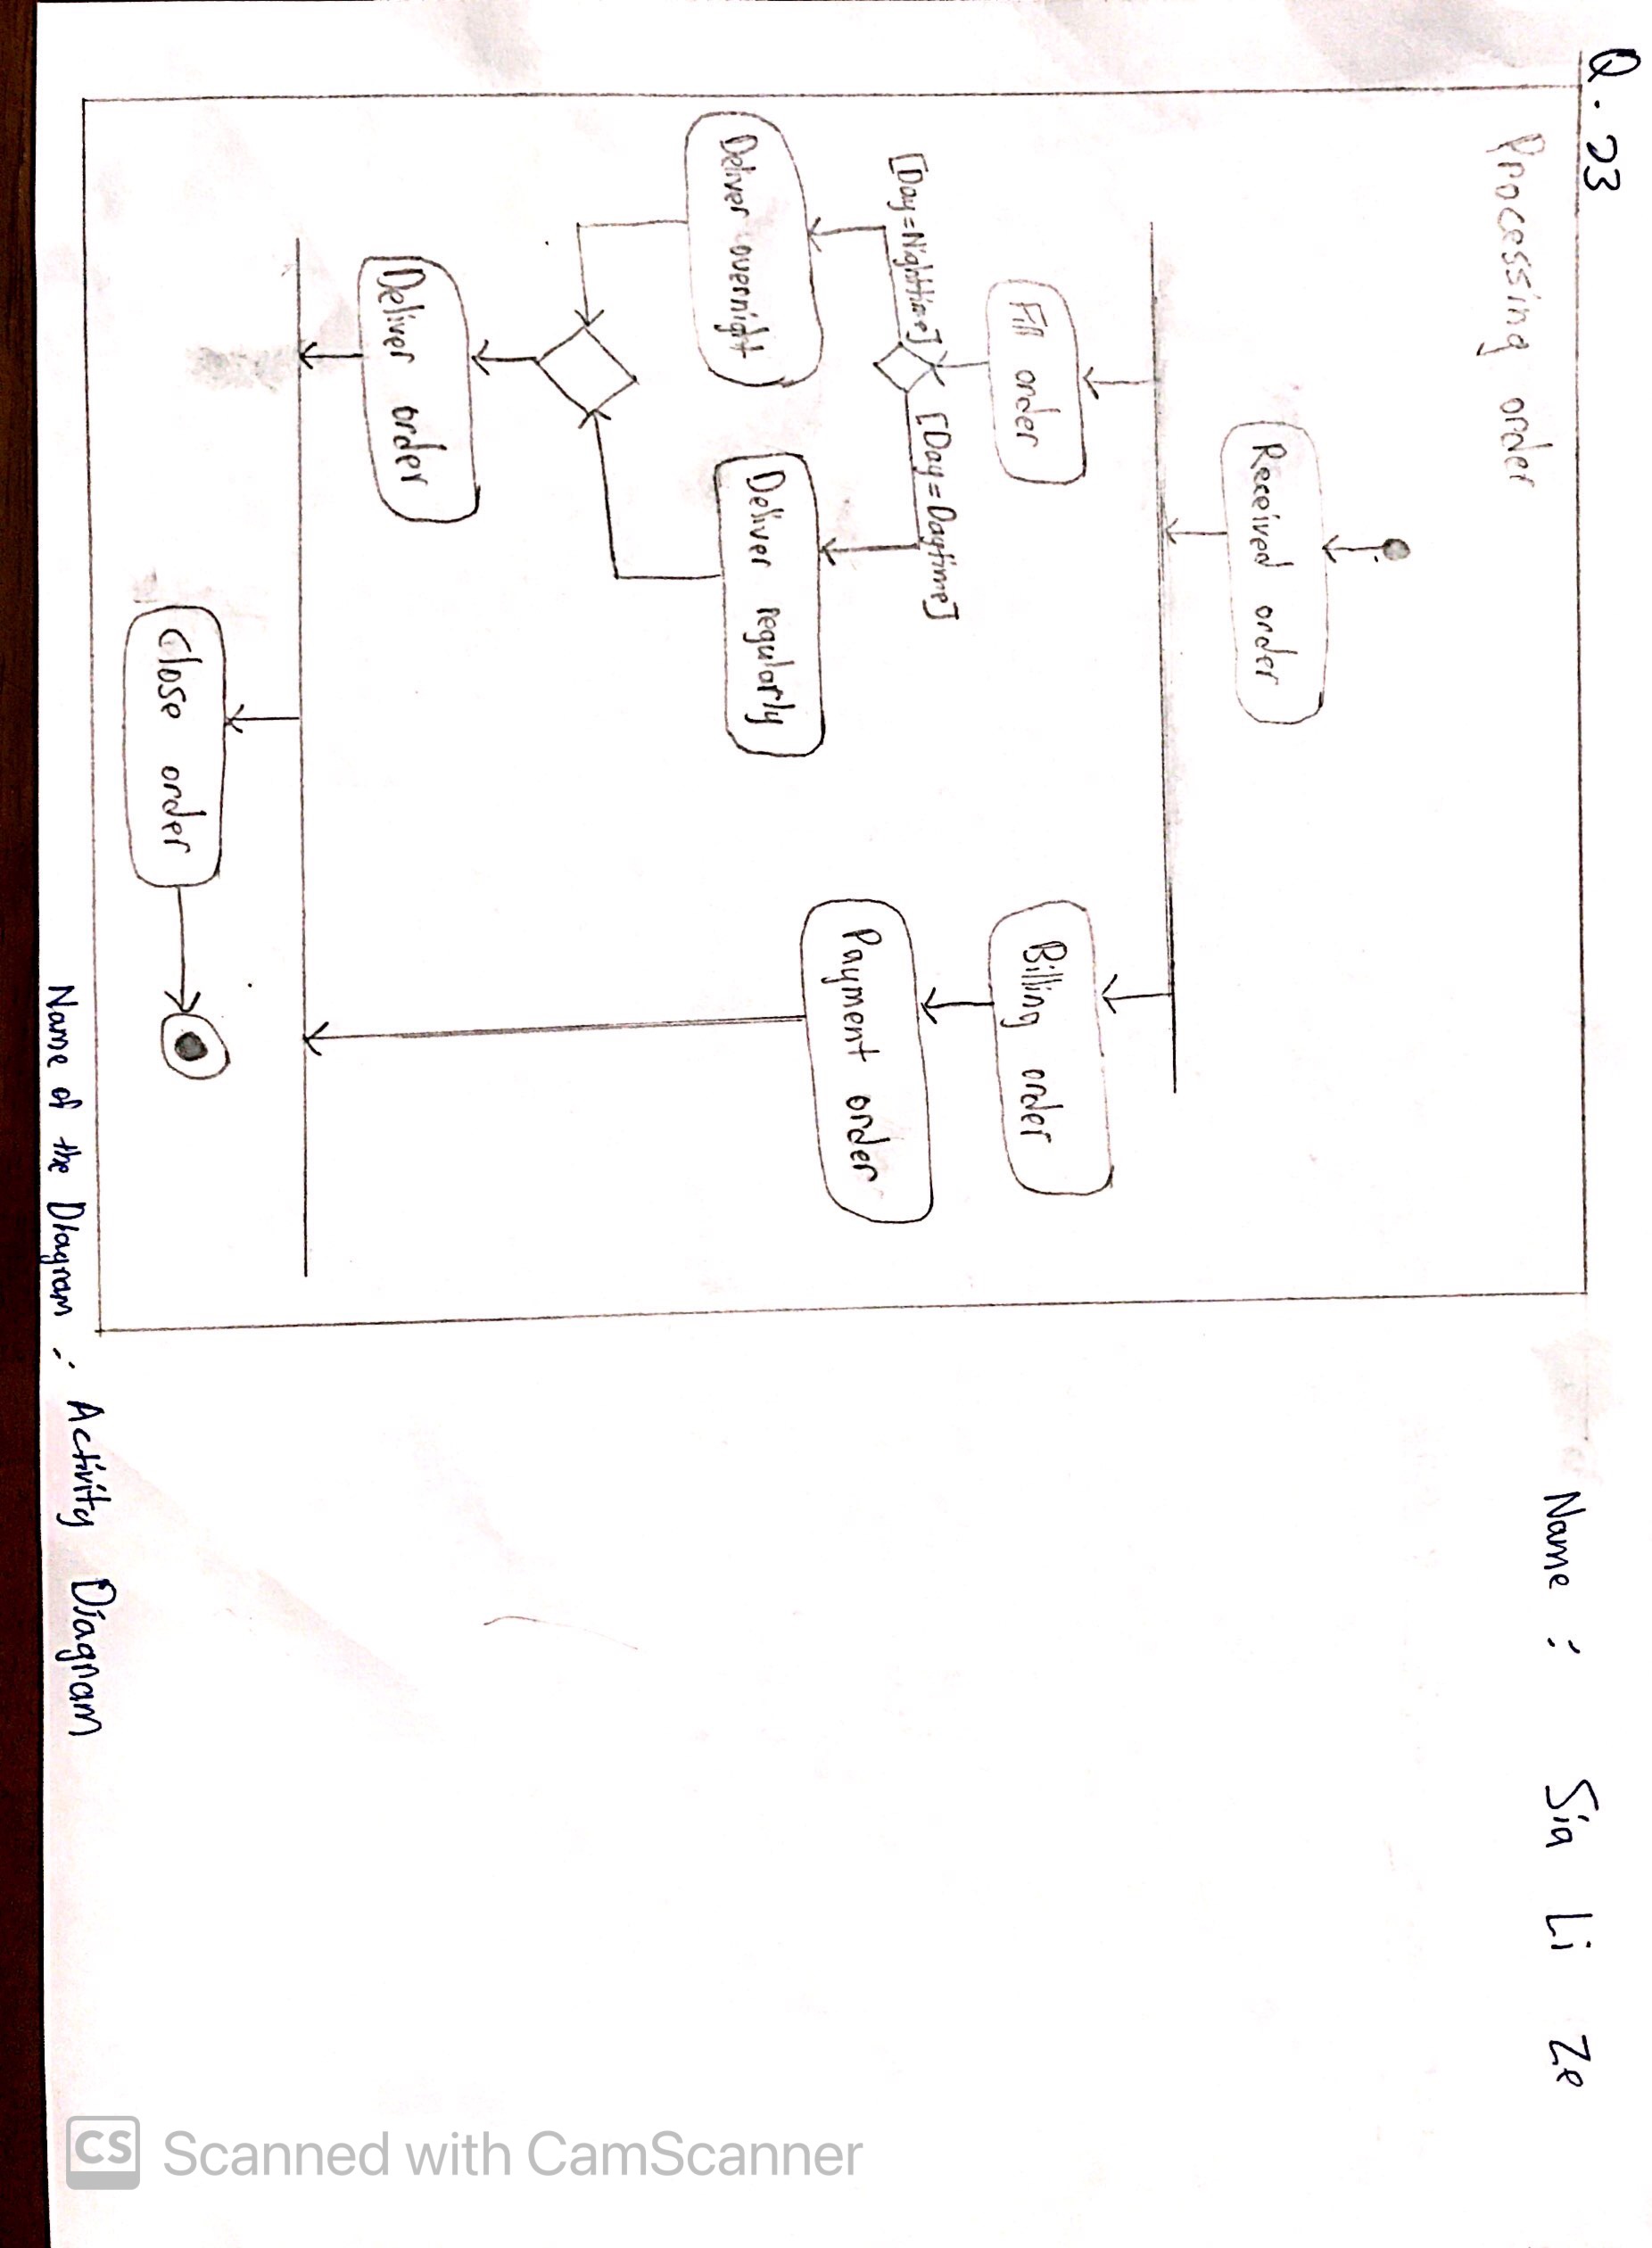 Q. 23
Name : Sia Li Ze
Processing order
Received order
Fill order
Billing order
[Day=Nighttime]
[Day=Daytime]
Payment order
Deliver overnight
Deliver regularly
Deliver order
Close order
Name of the Diagram : Activity Diagram
CS Scanned with CamScanner